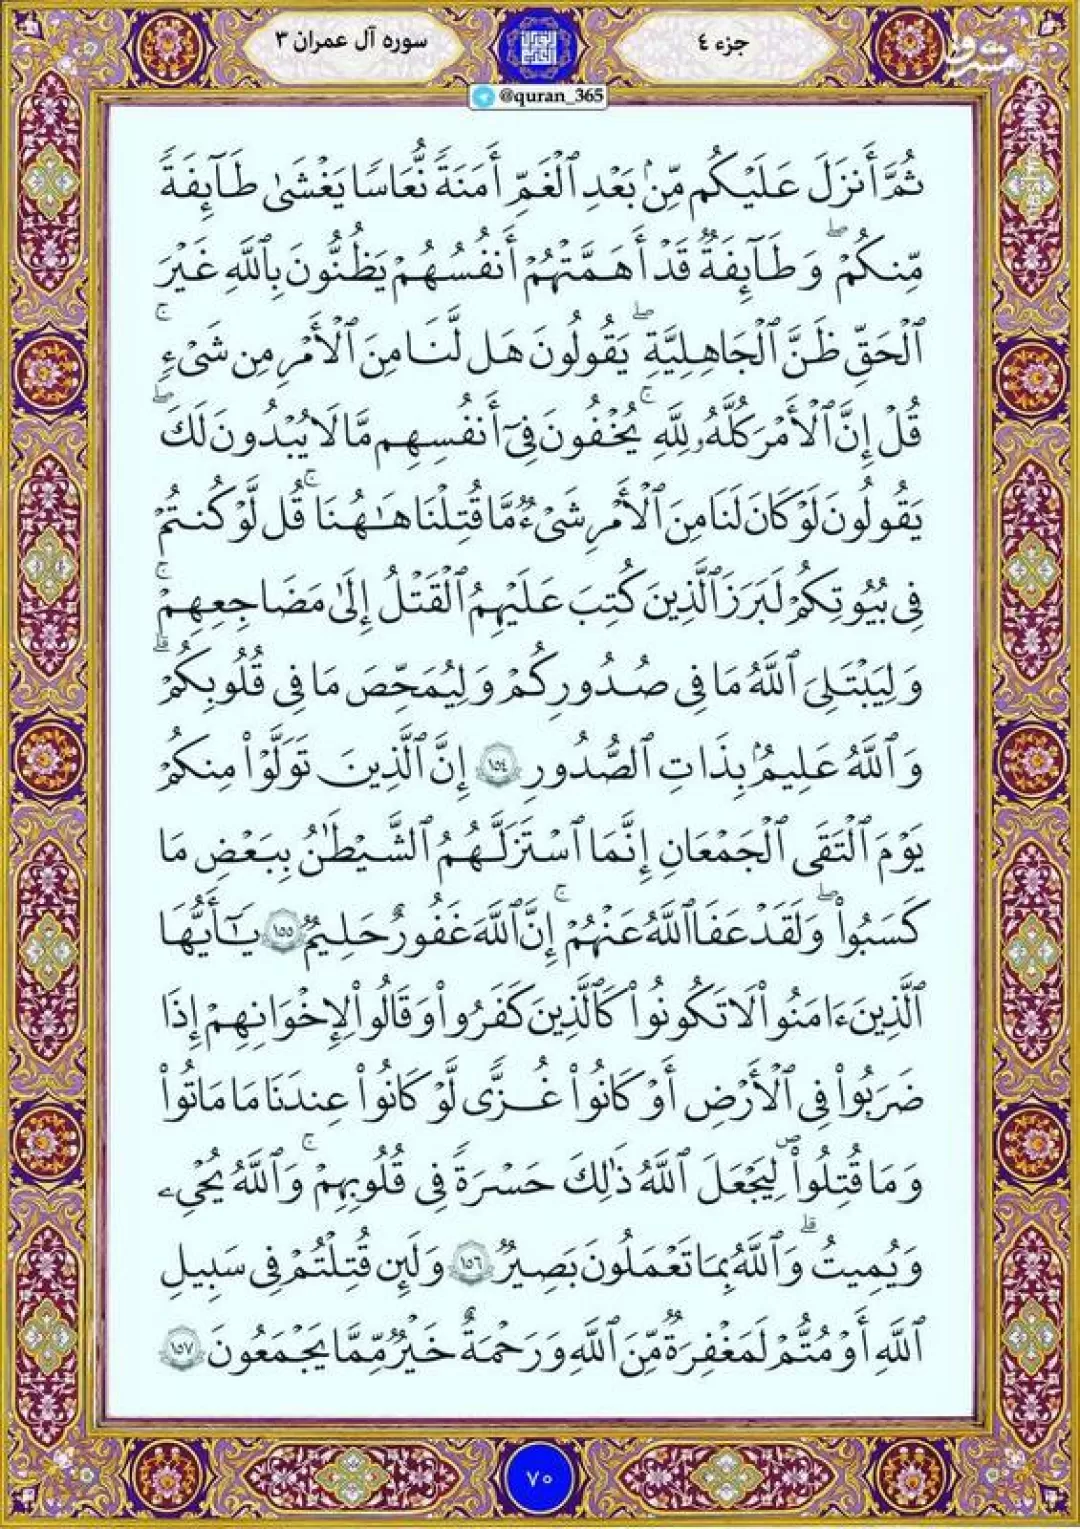 سوره آل عمران ٣
جزء ٤
@quran_365
ثُمَّ أَنزَلَ عَلَيْكُم مِّنۢ بَعْدِ ٱلْغَمِّ أَمَنَةً نُّعَاسًا يَغْشَىٰ طَآئِفَةً
مِّنكُمْ ۖ وَطَآئِفَةٌ قَدْ أَهَمَّتْهُمْ أَنفُسُهُمْ يَظُنُّونَ بِٱللَّهِ غَيْرَ
ٱلْحَقِّ ظَنَّ ٱلْجَاهِلِيَّةِ ۖ يَقُولُونَ هَل لَّنَا مِنَ ٱلْأَمْرِ مِن شَىْءٍ ۚ
قُلْ إِنَّ ٱلْأَمْرَ كُلَّهُۥ لِلَّهِ ۚ يُخْفُونَ فِىٓ أَنفُسِهِم مَّا لَا يُبْدُونَ لَكَ ۖ
يَقُولُونَ لَوْ كَانَ لَنَا مِنَ ٱلْأَمْرِ شَىْءٌ مَّا قُتِلْنَا هَـٰهُنَا ۚ قُل لَّوْ كُنتُمْ
فِى بُيُوتِكُمْ لَبَرَزَ ٱلَّذِينَ كُتِبَ عَلَيْهِمُ ٱلْقَتْلُ إِلَىٰ مَضَاجِعِهِمْ ۖ
وَلِيَبْتَلِىَ ٱللَّهُ مَا فِى صُدُورِكُمْ وَلِيُمَحِّصَ مَا فِى قُلُوبِكُمْ ۗ
وَٱللَّهُ عَلِيمٌۢ بِذَاتِ ٱلصُّدُورِ ١٥٤ إِنَّ ٱلَّذِينَ تَوَلَّوْا۟ مِنكُمْ
يَوْمَ ٱلْتَقَى ٱلْجَمْعَانِ إِنَّمَا ٱسْتَزَلَّهُمُ ٱلشَّيْطَـٰنُ بِبَعْضِ مَا
كَسَبُوا۟ ۖ وَلَقَدْ عَفَا ٱللَّهُ عَنْهُمْ ۚ إِنَّ ٱللَّهَ غَفُورٌ حَلِيمٌ ١٥٥ يَـٰٓأَيُّهَا
ٱلَّذِينَ ءَامَنُوا۟ لَا تَكُونُوا۟ كَٱلَّذِينَ كَفَرُوا۟ وَقَالُوا۟ لِإِخْوَانِهِمْ إِذَا
ضَرَبُوا۟ فِى ٱلْأَرْضِ أَوْ كَانُوا۟ غُزًّى لَّوْ كَانُوا۟ عِندَنَا مَا مَاتُوا۟
وَمَا قُتِلُوا۟ لِيَجْعَلَ ٱللَّهُ ذَٰلِكَ حَسْرَةً فِى قُلُوبِهِمْ ۗ وَٱللَّهُ يُحْىِۦ
وَيُمِيتُ ۗ وَٱللَّهُ بِمَا تَعْمَلُونَ بَصِيرٌ ١٥٦ وَلَئِن قُتِلْتُمْ فِى سَبِيلِ
ٱللَّهِ أَوْ مُتُّمْ لَمَغْفِرَةٌ مِّنَ ٱللَّهِ وَرَحْمَةٌ خَيْرٌ مِّمَّا يَجْمَعُونَ ١٥٧
٧٠